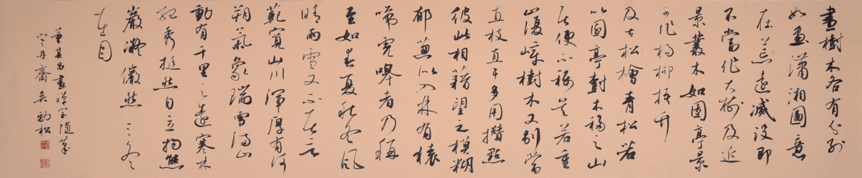 畫樹木各有分別
如畫瀟湘圖意
在荒遠滅沒即
不當作大樹及近
景叢木如園亭景
可作楊柳梧竹
及古松檜青松若
以園亭樹木移之山
居便不稱矣若重
山復嶂樹木又別當
直枝直干多用攢點
彼此相藉望之模糊
郁蔥似入林有猿
啼虎嗥者乃稱
至如春夏秋冬風
晴雨雪又不在言
範寬山川渾厚有河
朔氣象瑞雪滿山
動有千里之遠寒林
孤秀挺然自立物態
嚴凝儼然三冬
在目
董其昌畫禪室隨筆
丹齋吳勁松